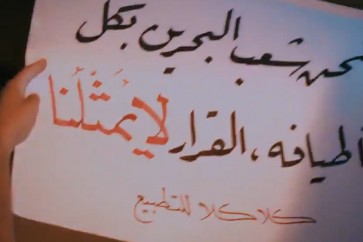 نحن شعب البحرين بكل
أطيافه، القرار لا يمثّلنا
كلا كلا للتطبيع